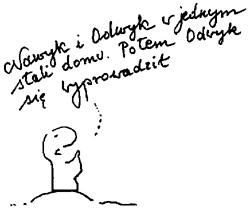 Nawyk i Odwyk w jednym
stali domu. Potem Odwyk
się wyprowadził